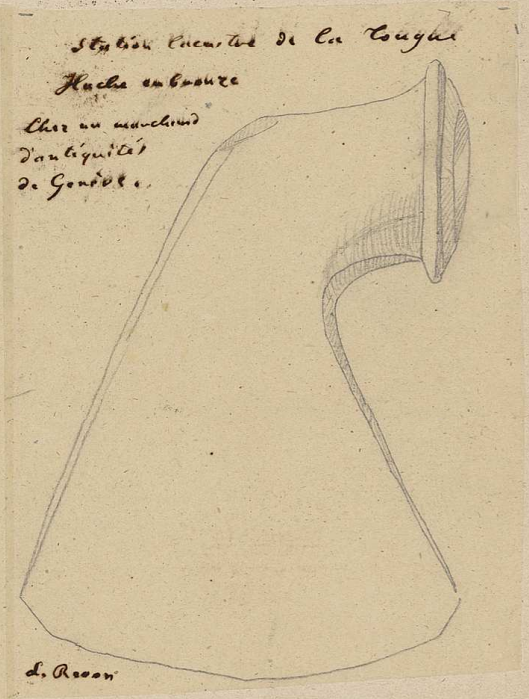 Station lacustre de la Tougue
Hache en bronze
Chez un marchand
d'antiquités
de Genève.
L. Revon